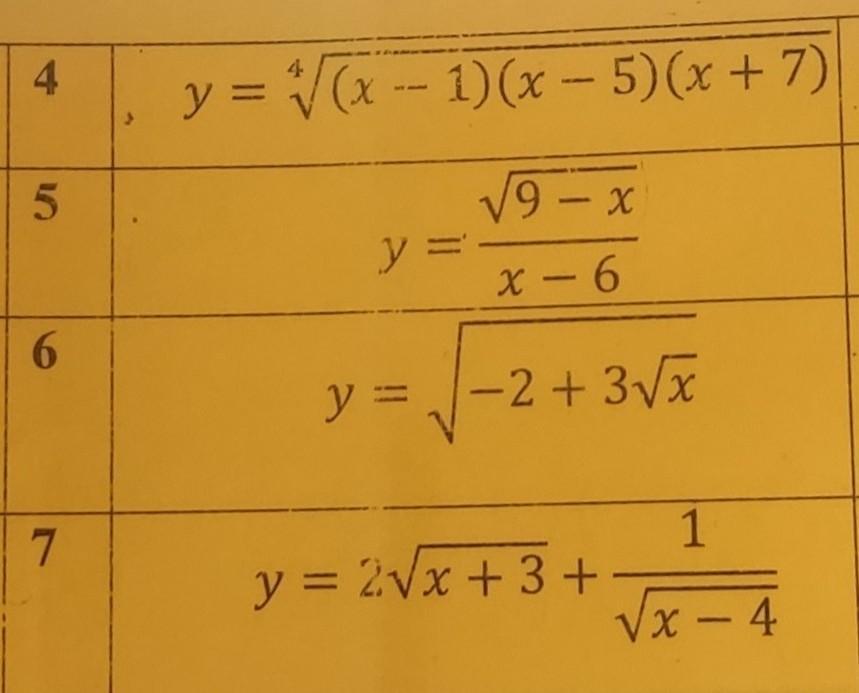 4 y = ∜((x − 1)(x − 5)(x + 7))
5 y = √(9 − x) / (x − 6)
6 y = √(−2 + 3√x)
7 y = 2√(x + 3) + 1/√(x − 4)